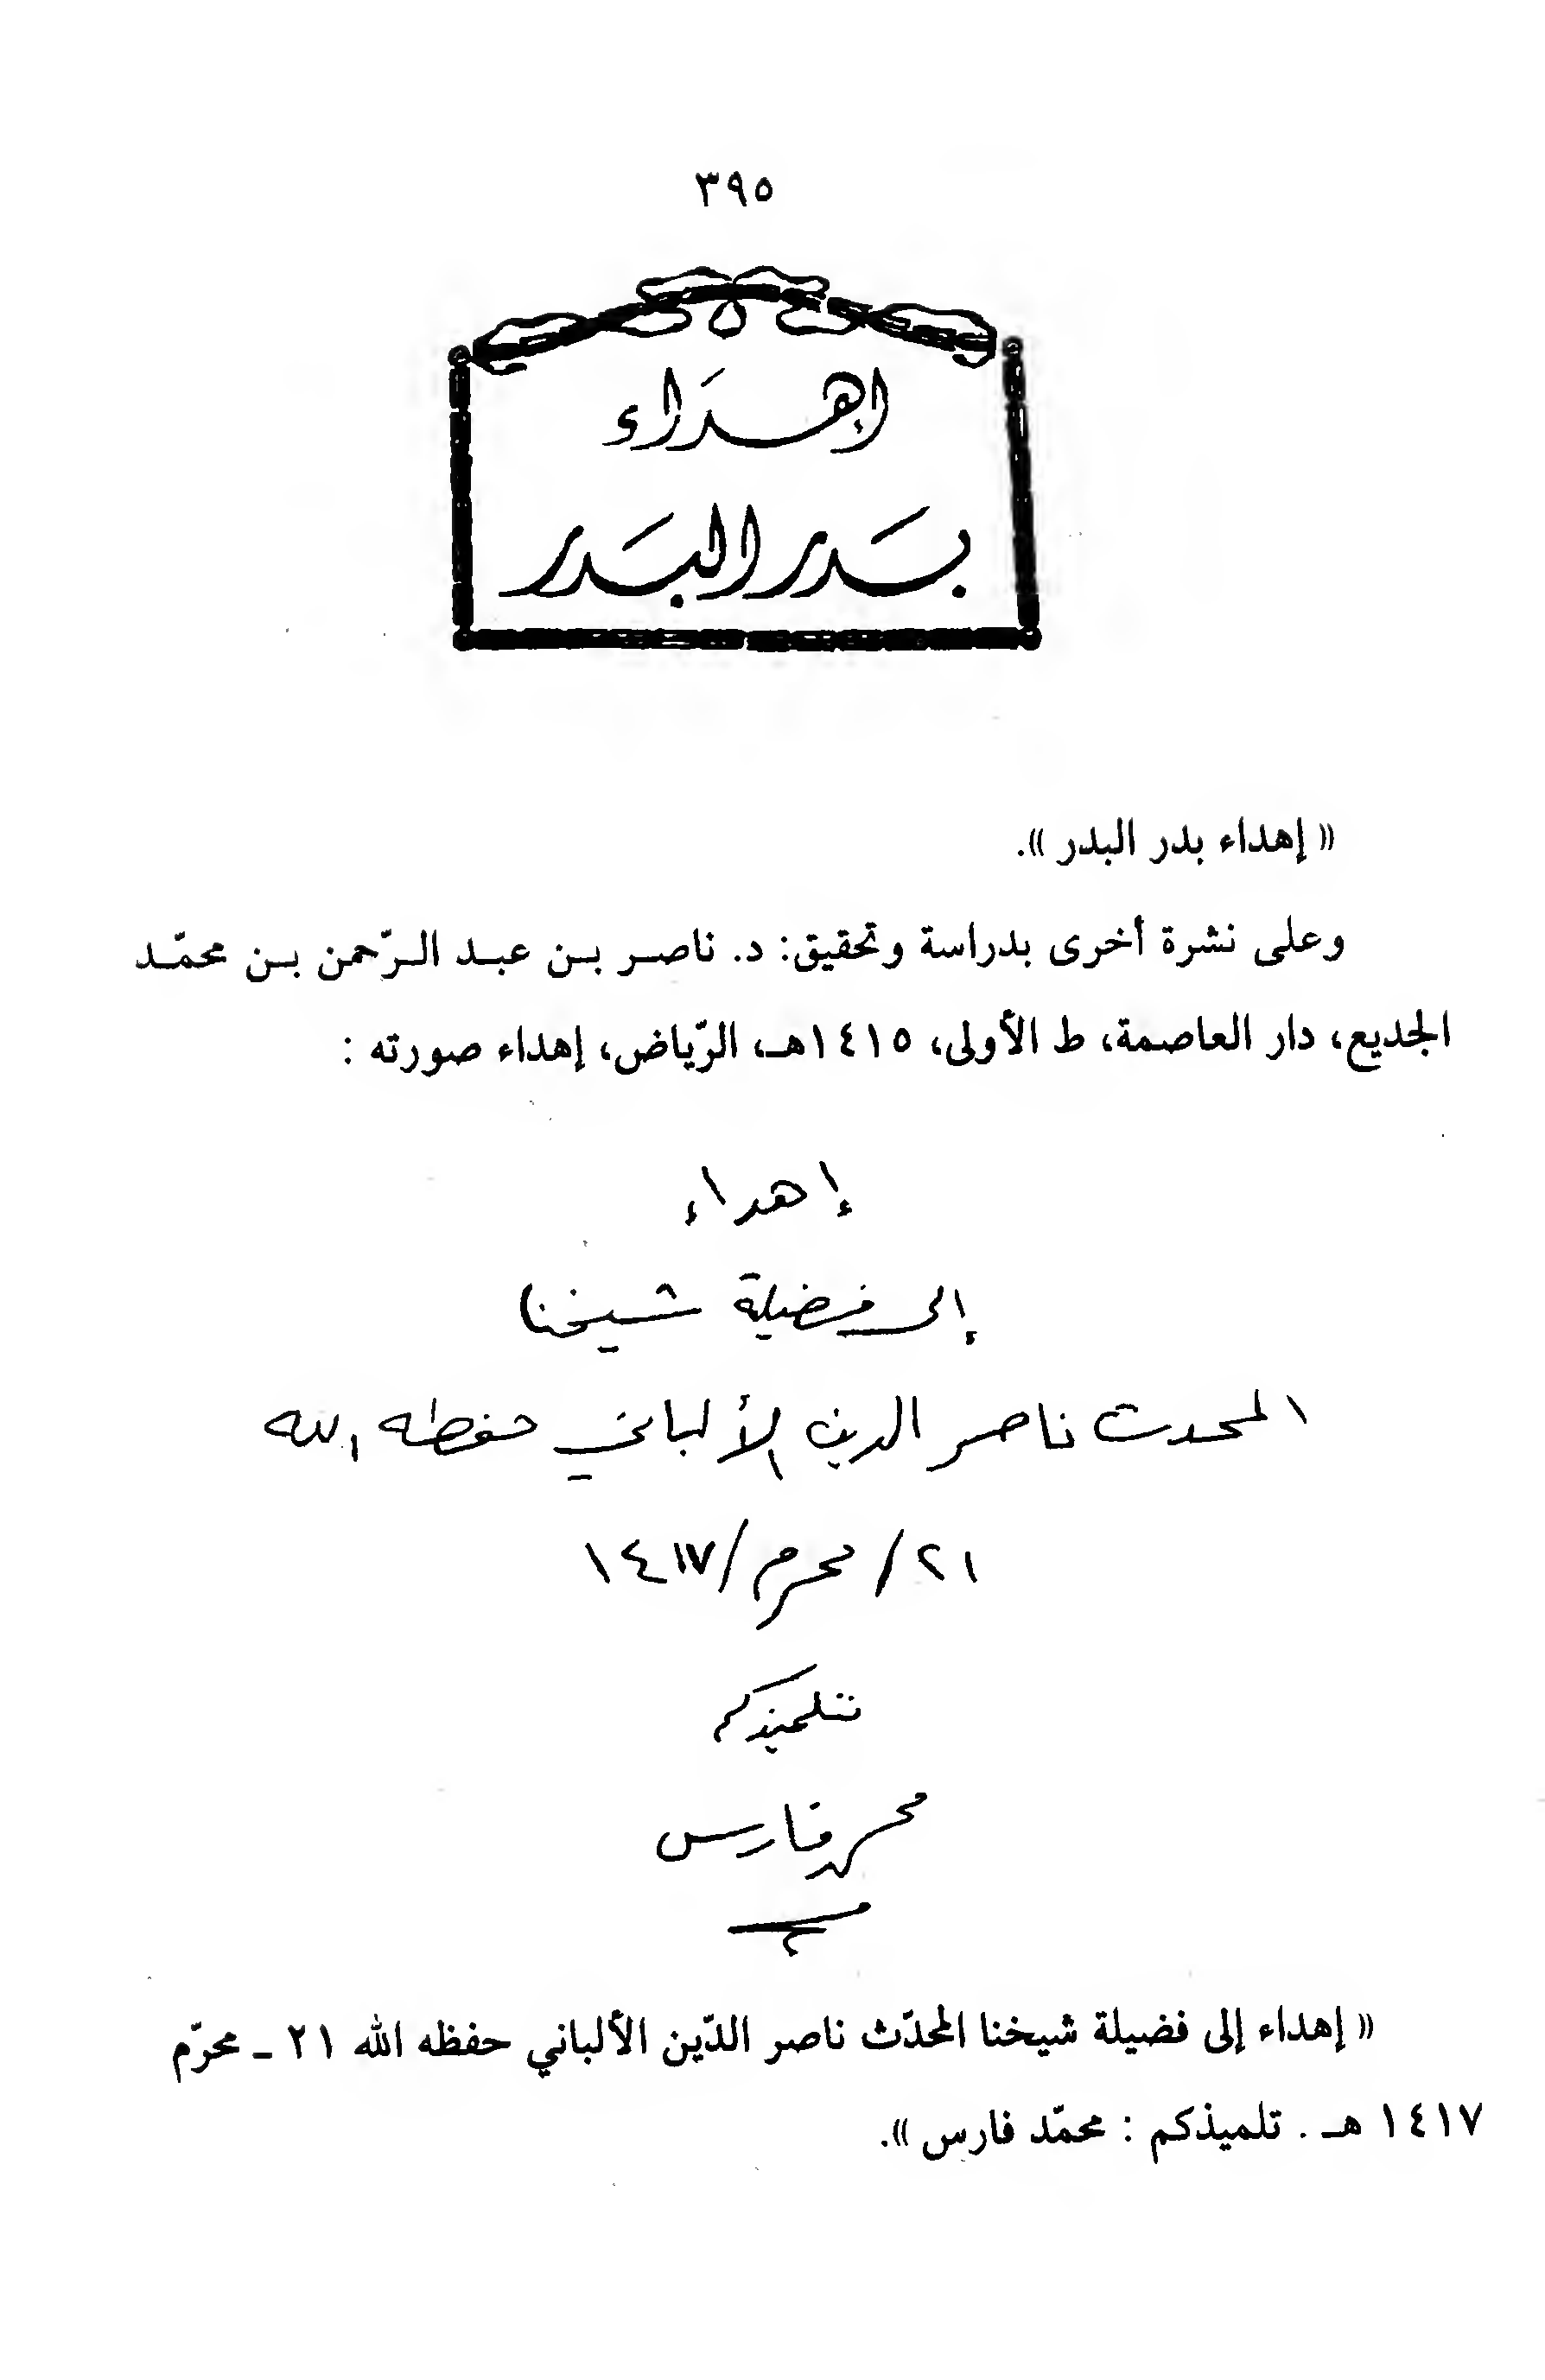 ٣٩٥
إهداء
بدر البدر
« إهداء بدر البدر ».
وعلى نشرة أخرى بدراسة وتحقيق: د. ناصر بن عبد الرّحمن بن محمّد
الجديع، دار العاصمة، ط الأولى، ١٤١٥هـ، الرّياض، إهداء صورته :
إهداء
إلى فضيلة شيخنا
المحدث ناصر الدين الألباني حفظه الله
٢١/محرم/١٤١٧
تلميذكم
محمد فارس
« إهداء إلى فضيلة شيخنا المحدّث ناصر الدّين الألباني حفظه الله ٢١ ـ محرّم
١٤١٧ هـ . تلميذكم : محمّد فارس ».